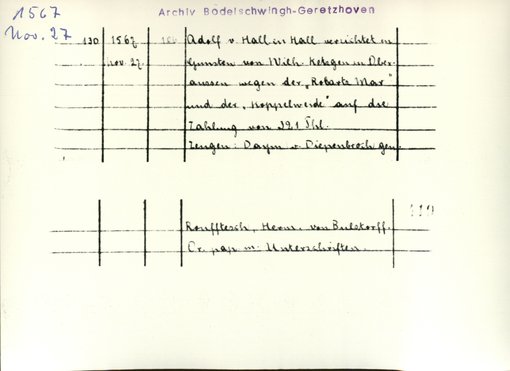 Archiv Bodelschwingh-Geretzhoven
1567
Nov. 27
130 1567 Adolf v. Hall in Hall verzichtet zu
Nov. 27. Gunsten von Wilh. Ketzgen in Ober-
aussen wegen der „Robarts Mar"
und der „Koppelweide" auf die
Zahlung von 321 Thl.
Zeugen: Daym v. Diepenbroch gen.
119
Roufftesch, Herm. von Bulstorff.
Or. pap. m. Unterschriften.